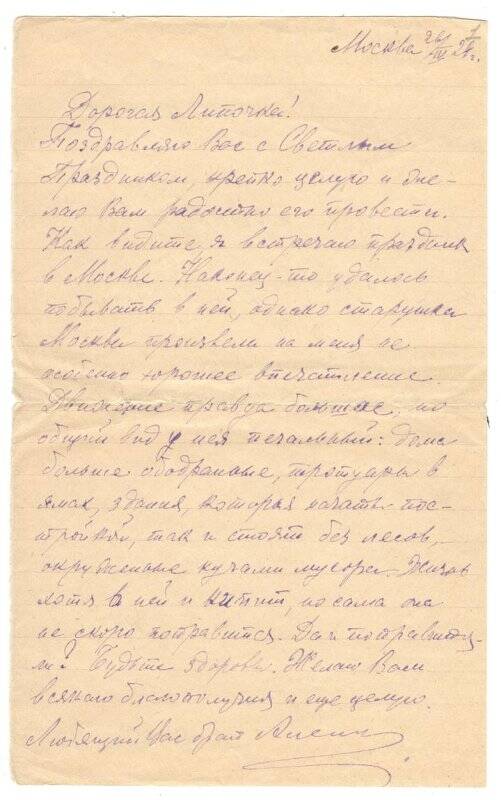 Москва
Дорогая Липочка!
Поздравляю Вас с Светлым
Праздником, крепко целую и
лаю Вам радостно его провести.
Как видите, я встречаю праздник
в Москве. Наконец-то удалось
побывать в ней, однако старушка
Москва произвела на меня не
особенно хорошее впечатление.
Движение правда большое, но
общий вид у нея печальный: дома
больше ободранные, тротуары в
ямах, здания, которыя начаты пос-
тройкой, так и стоят без лесов,
окруженные кучами мусора. Жизнь
хотя в ней и кипит, но сама она
не скоро поправится. Да и поправится
ли? Будьте здоровы. Желаю Вам
всякаго благополучия и еще целую.
Любящий Вас брат